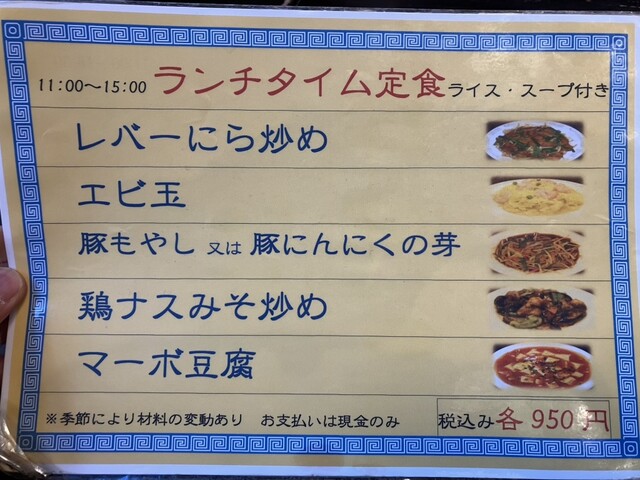 11:00～15:00 ランチタイム定食 ライス・スープ付き
レバーにら炒め
エビ玉
豚もやし 又は 豚にんにくの芽
鶏ナスみそ炒め
マーボ豆腐
※季節により材料の変動あり お支払いは現金のみ 税込み各 950 円